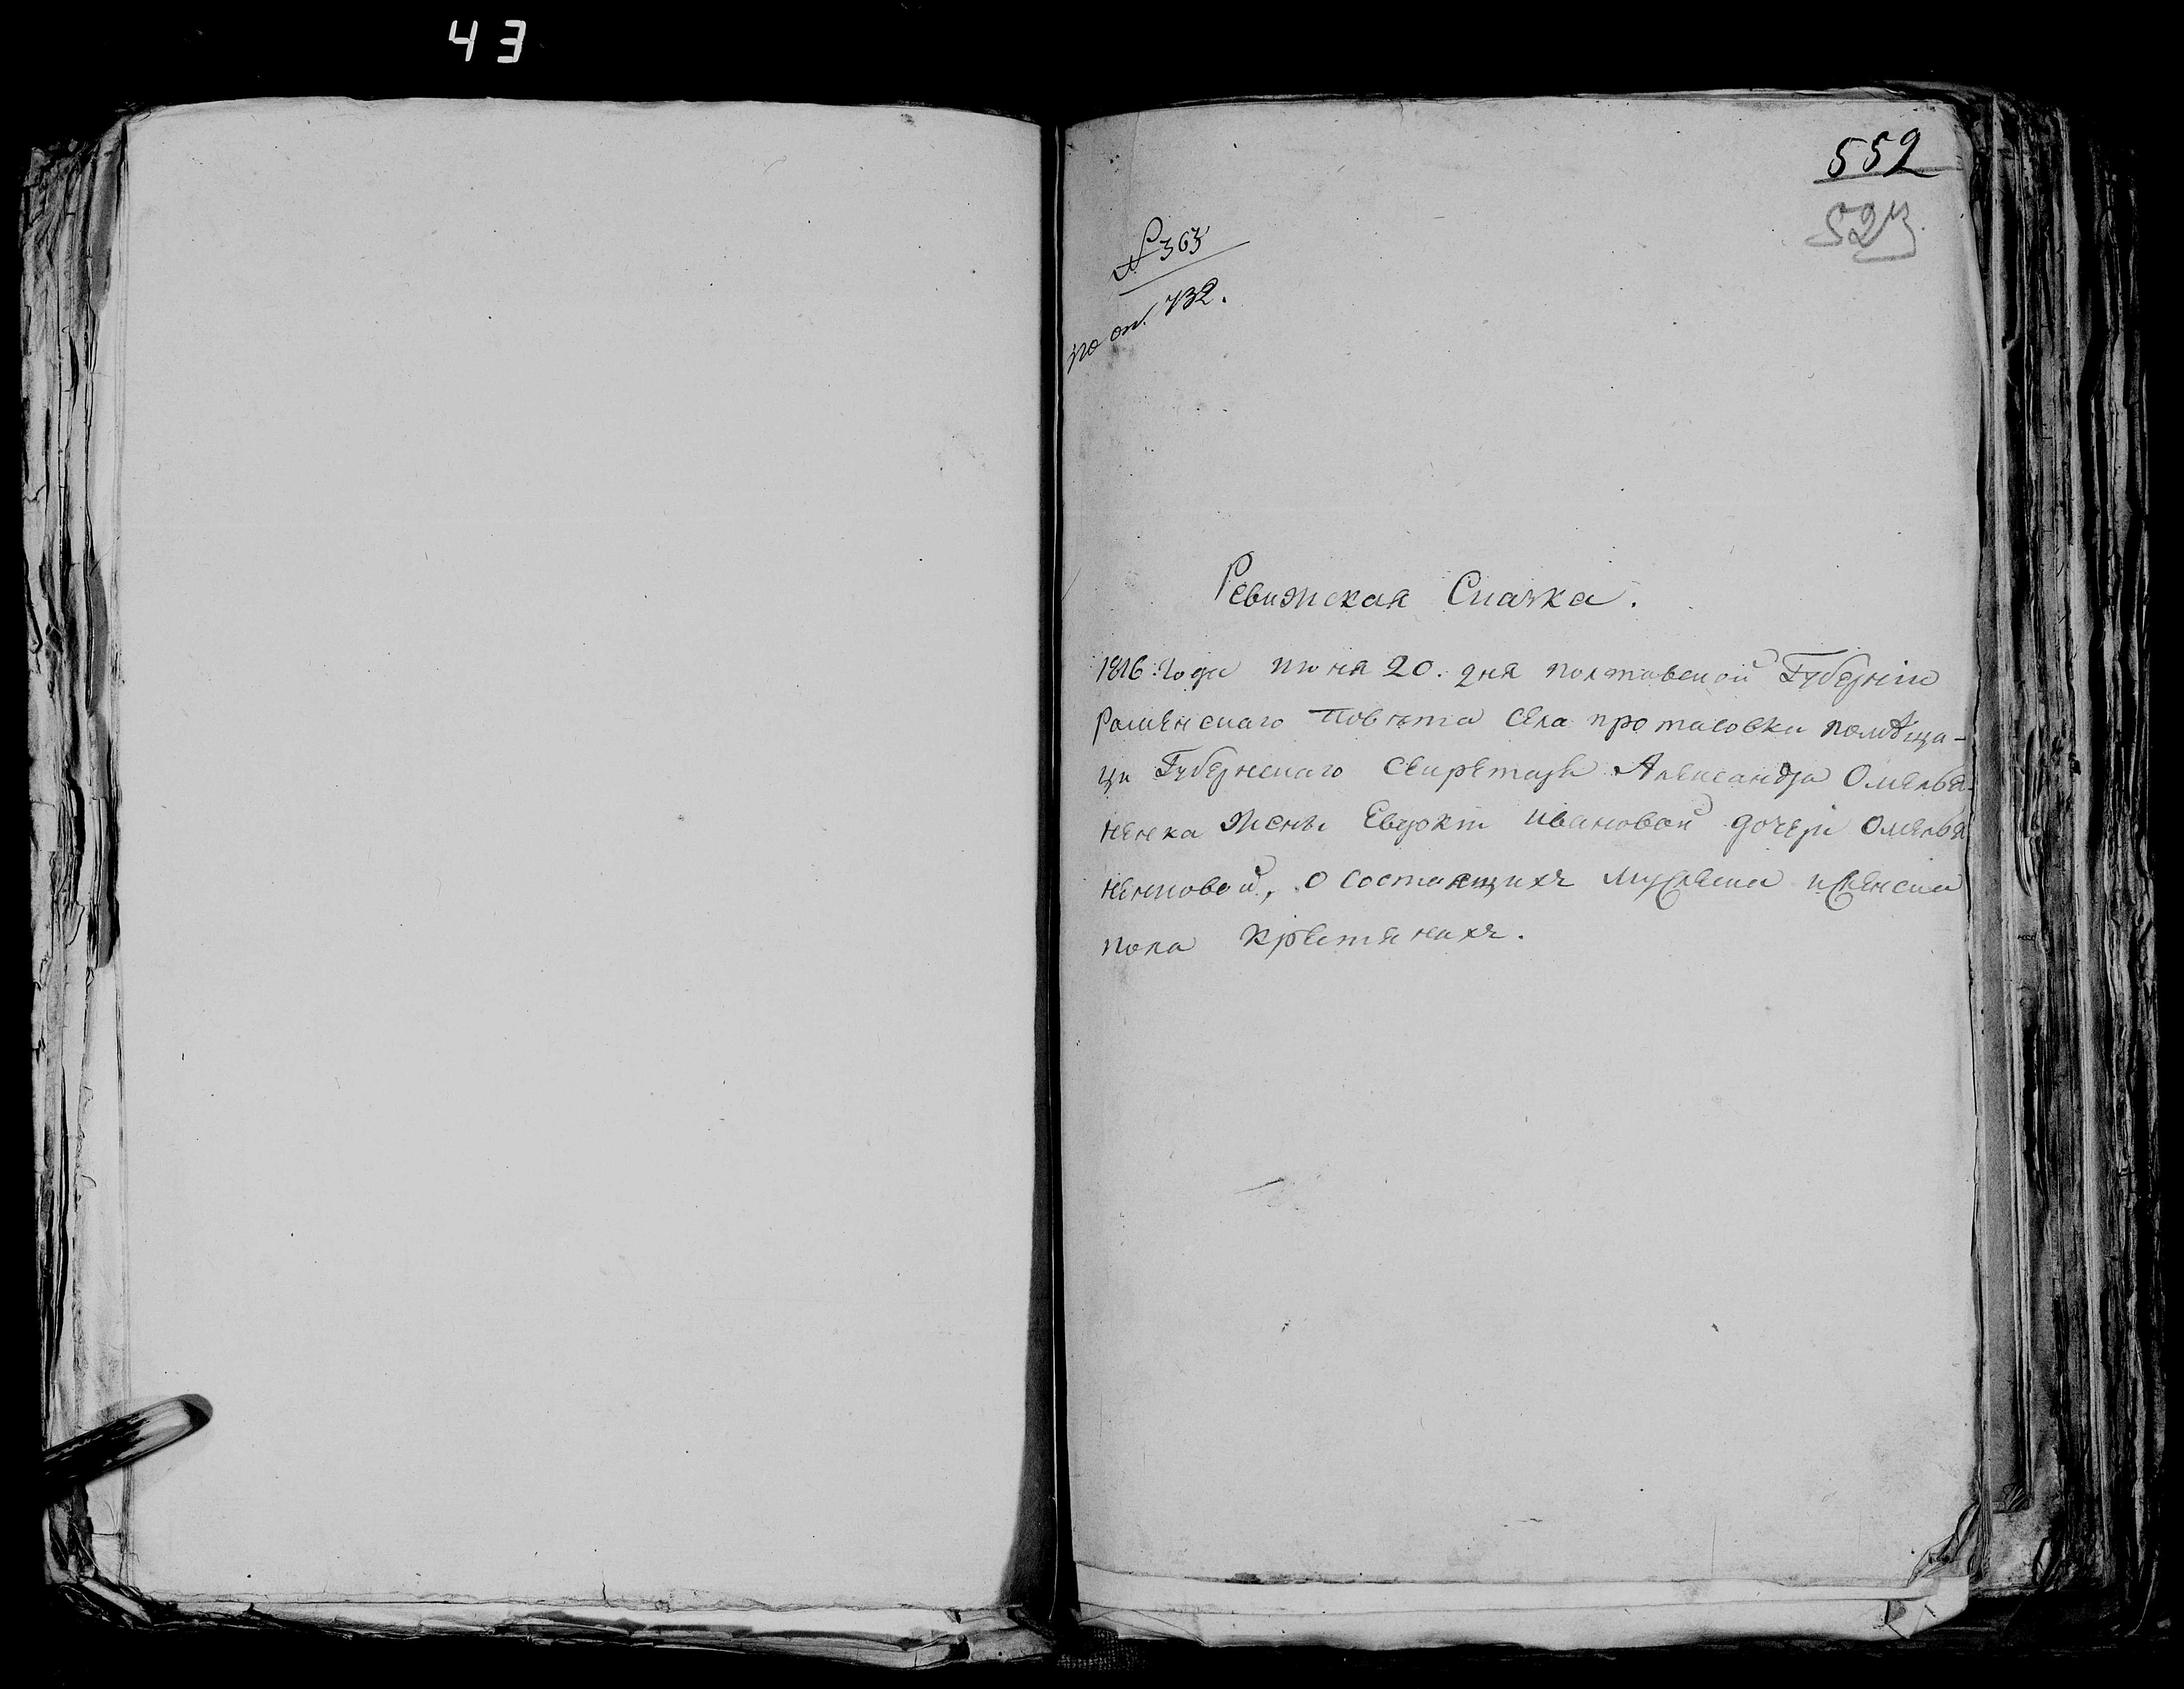 43
552
523
№ 363
по оп. 732.
Ревижская Скаска.
1816: Года июня 20. дня полтавской Губерніи
роменскаго Повѣта села протасовки помѣщи-
ци Губернскаго секретаря Александра Омелья-
ненка жены Евдокіи ивановой дочери Омелья
ненковой, о состоящихъ мужеска и женска
пола крестянахъ.